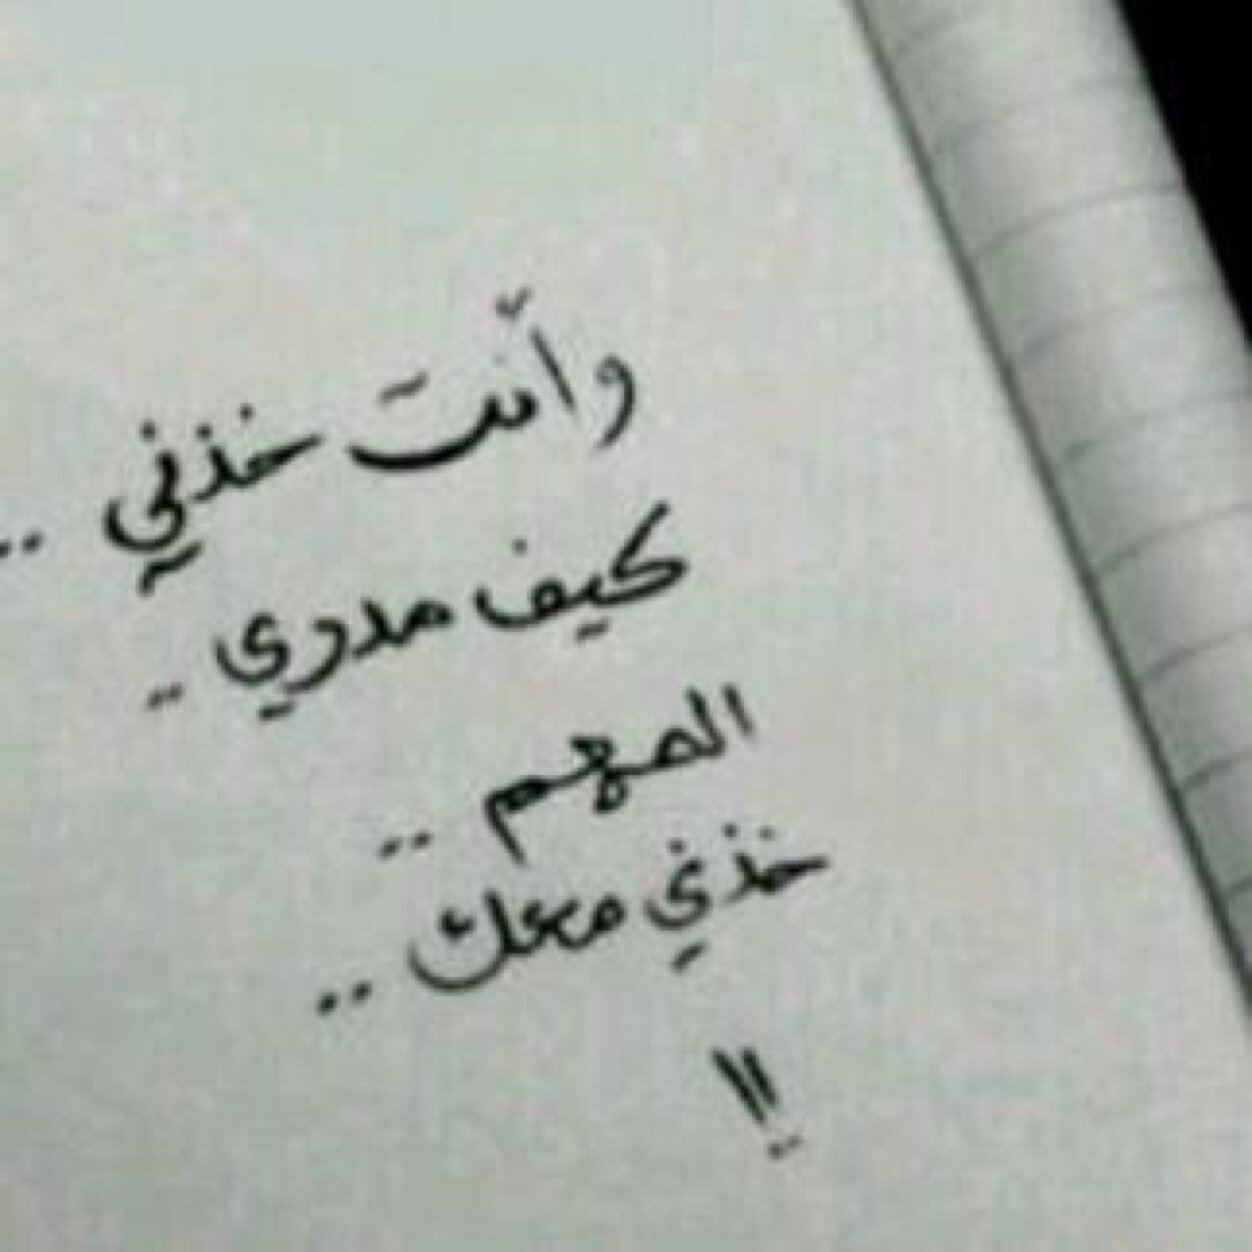 وأنت خذني ..
كيف مدري ..
المهم ..
خذني معك ..
!!